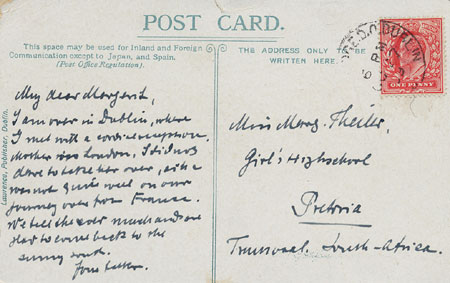 POST CARD.
This space may be used for Inland and Foreign
Communication except to Japan, and Spain.
(Post Office Regulation).
THE ADDRESS ONLY TO BE
WRITTEN HERE.
DUBLIN
ONE PENNY
Lawrence, Publisher, Dublin.
My dear Margarit,
I am over in Dublin, where
I met with a reception.
Mother in London, I did not
dare to take her over, as she
was not quite well on our
journey over from France.
We feel the cold much and are
glad to come back to the
sunny south.
Miss Marg. Theiler,
Girl's Highschool
Pretoria
Transvaal. South-Africa.